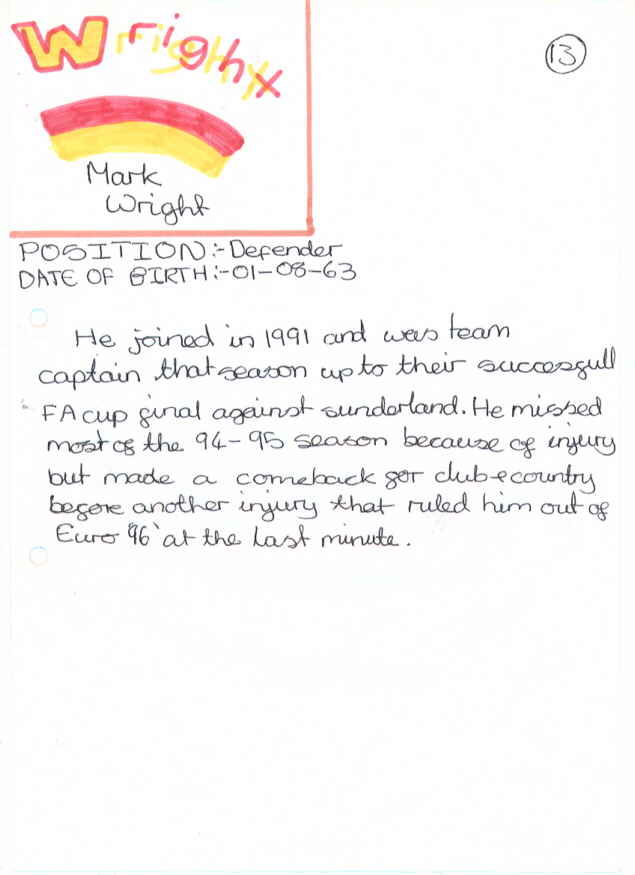 Wright
13
Mark
Wright
POSITION:- Defender
DATE OF BIRTH:-01-08-63
He joined in 1991 and was team
captain that season up to their successfull
FA cup final against sunderland. He missed
most of the 94-95 season because of injury
but made a comeback for club & country
before another injury that ruled him out of
Euro '96' at the last minute.